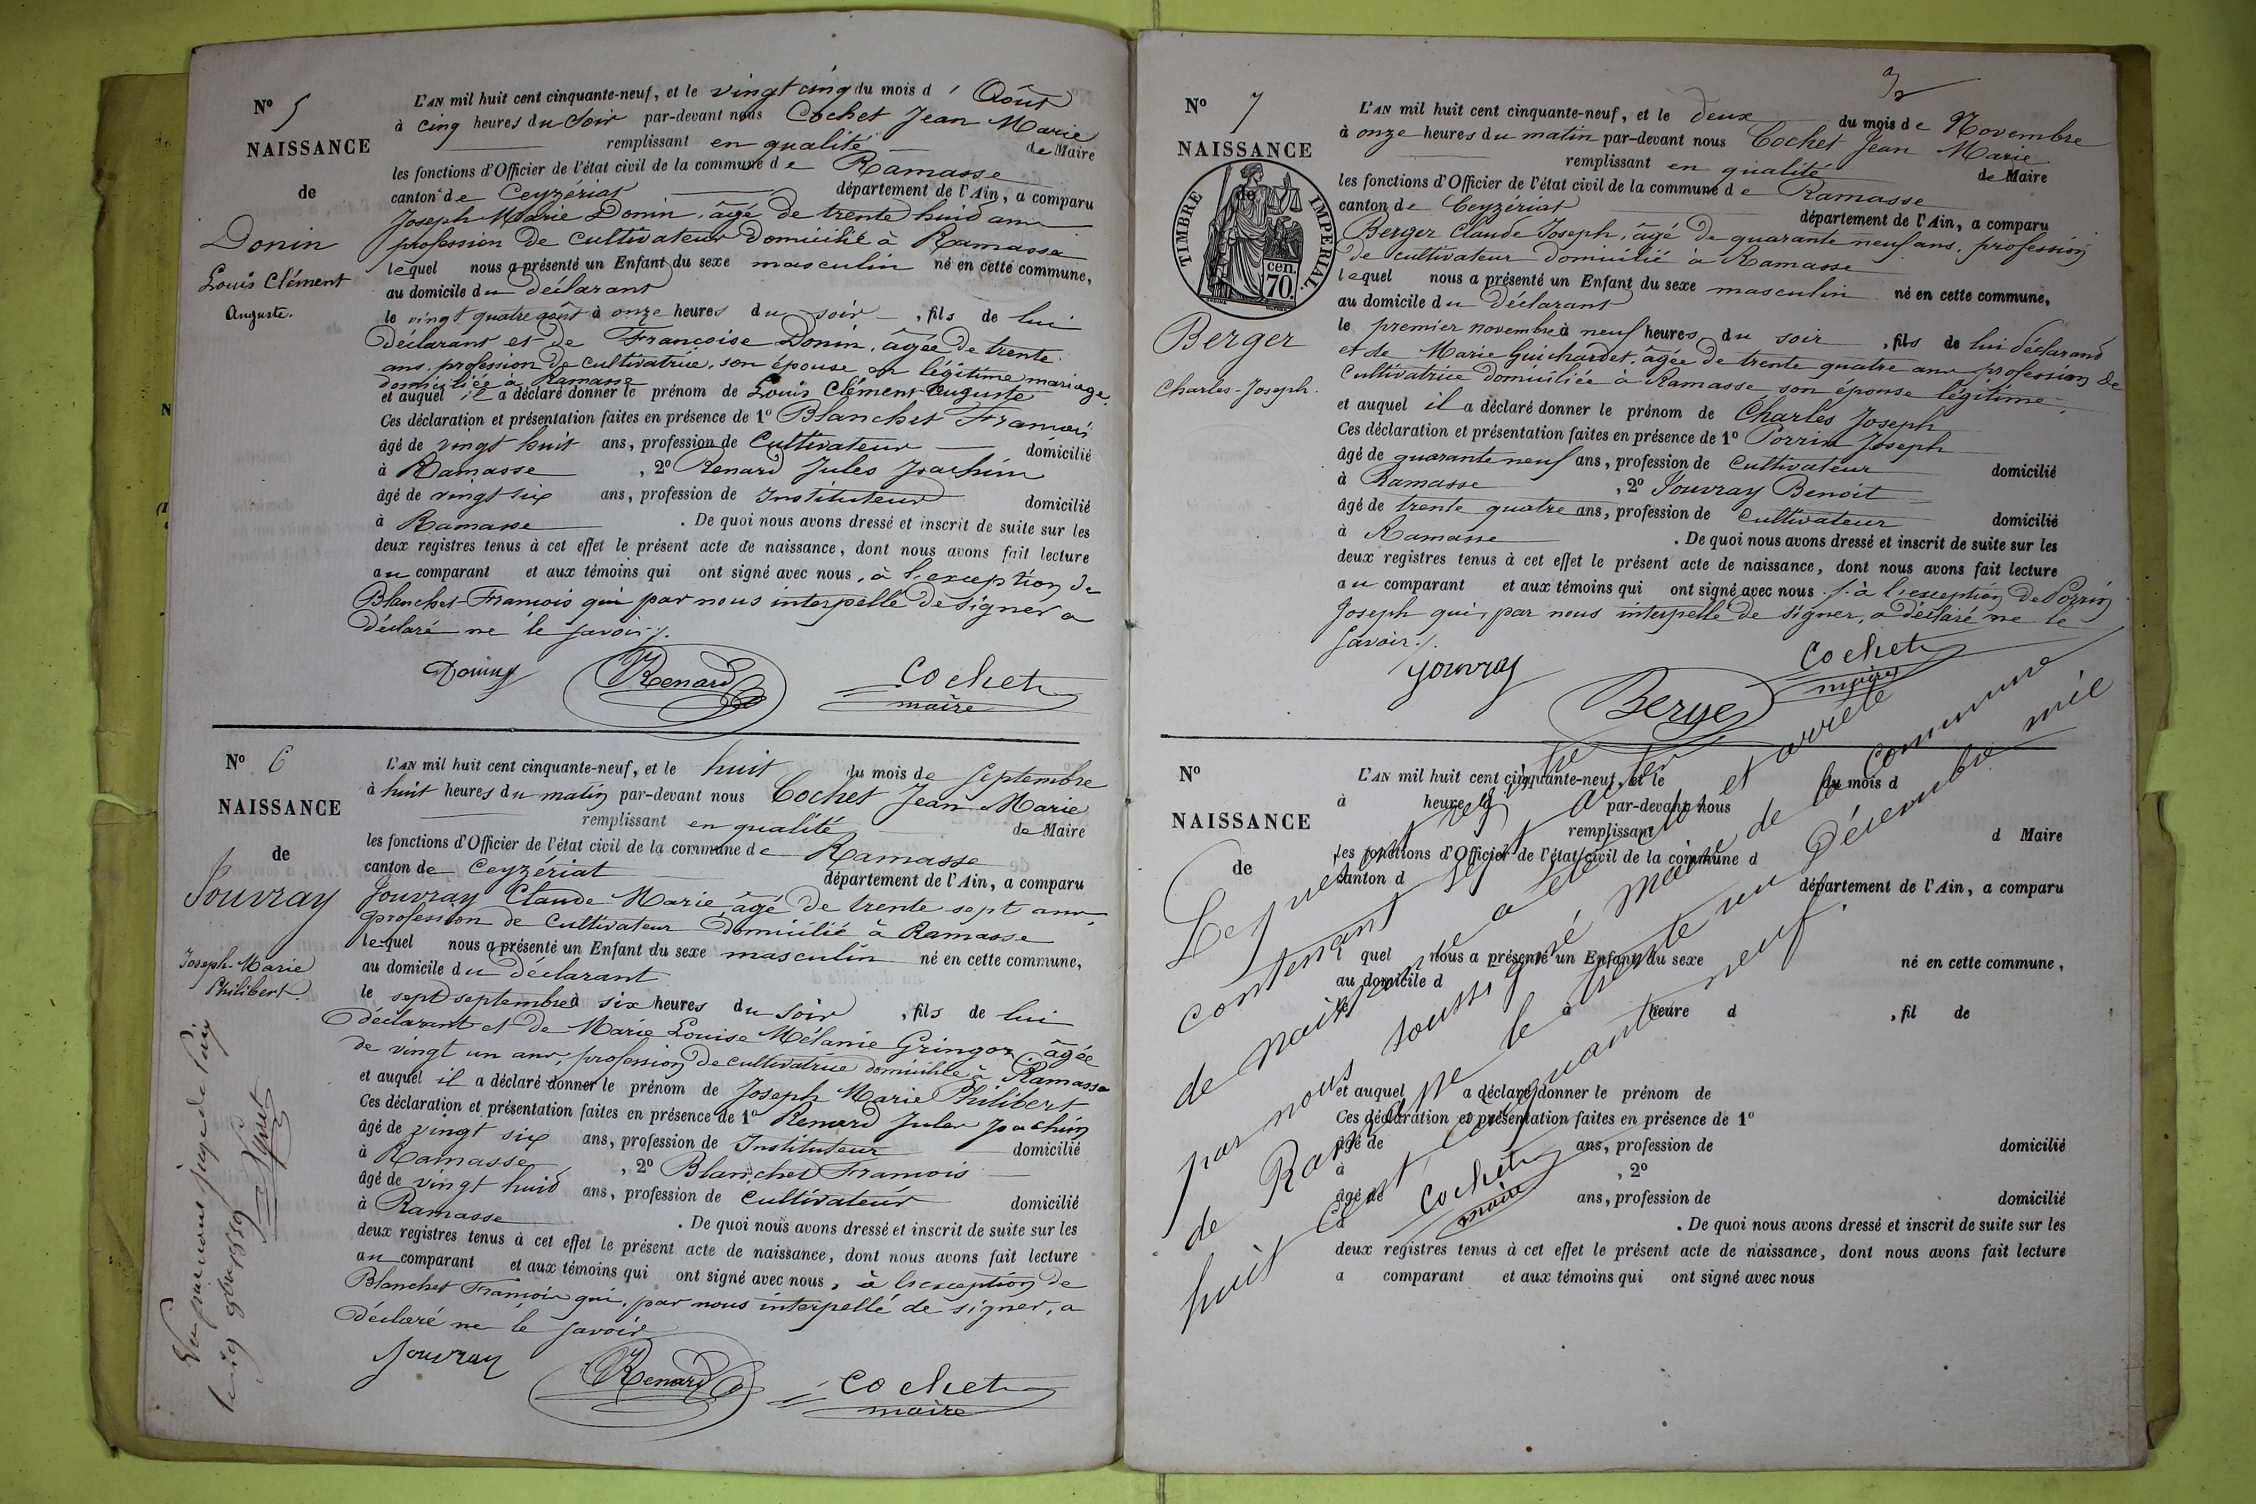 N° 5
NAISSANCE
de
Donin
Louis Clément
Auguste.
L'AN mil huit cent cinquante-neuf, et le vingt cinq du mois d'Août
à cinq heures du soir par-devant nous Cochet Jean Marie
remplissant en qualité de Maire
les fonctions d'Officier de l'état civil de la commune de Ramasse
canton de Ceyzériat département de l'Ain, a comparu
Joseph Marie Donin, âgé de trente huit ans
profession de cultivateur domicilié à Ramasse
lequel nous a présenté un Enfant du sexe masculin né en cette commune,
au domicile du déclarant
le vingt quatre août à onze heures du soir, fils de lui
déclarant et de Françoise Donin, âgée de trente
ans, profession de cultivatrice, son épouse en légitime mariage
domiciliée à Ramasse
et auquel il a déclaré donner le prénom de Louis Clément Auguste
Ces déclaration et présentation faites en présence de 1° Blanchet François
âgé de vingt huit ans, profession de Cultivateur domicilié
à Ramasse, 2° Renard Jules Joachim
âgé de vingt six ans, profession de Instituteur domicilié
à Ramasse. De quoi nous avons dressé et inscrit de suite sur les
deux registres tenus à cet effet le présent acte de naissance, dont nous avons fait lecture
au comparant et aux témoins qui ont signé avec nous, à l'exception de
Blanchet François qui par nous interpellé de signer a
déclaré ne le savoir ./.
Renard
Cochet
maire
N° 6
NAISSANCE
de
Jouvray
Joseph-Marie
Philibert.
Vu par nous juge de Paix
le 19 9bre 1859
L'AN mil huit cent cinquante-neuf, et le huit du mois de Septembre
à huit heures du matin par-devant nous Cochet Jean Marie
remplissant en qualité de Maire
les fonctions d'Officier de l'état civil de la commune de Ramasse
canton de Ceyzériat département de l'Ain, a comparu
Jouvray Claude Marie âgé de trente sept ans
profession de cultivateur domicilié à Ramasse
lequel nous a présenté un Enfant du sexe masculin né en cette commune,
au domicile du déclarant
le sept septembre à six heures du soir, fils de lui
déclarant et de Marie Louise Mélanie Gringoz, âgée
de vingt un ans, profession de cultivatrice domiciliée à Ramasse
et auquel il a déclaré donner le prénom de Joseph Marie Philibert
Ces déclaration et présentation faites en présence de 1° Renard Jules Joachim
âgé de vingt six ans, profession de Instituteur domicilié
à Ramasse, 2° Blanchet François
âgé de vingt huit ans, profession de cultivateur domicilié
à Ramasse. De quoi nous avons dressé et inscrit de suite sur les
deux registres tenus à cet effet le présent acte de naissance, dont nous avons fait lecture
au comparant et aux témoins qui ont signé avec nous, à l'exception de
Blanchet François qui, par nous interpellé de signer, a
déclaré ne le savoir
Jouvray
Renard
Cochet
maire
N° 7
NAISSANCE
de
TIMBRE IMPERIAL.
cen.
70.
Berger
Charles-Joseph.
L'AN mil huit cent cinquante-neuf, et le deux du mois de Novembre
à onze heures du matin par-devant nous Cochet Jean Marie
remplissant en qualité de Maire
les fonctions d'Officier de l'état civil de la commune de Ramasse
canton de Ceyzériat département de l'Ain, a comparu
Berger Claude Joseph, âgé de quarante neuf ans, profession
de cultivateur domicilié à Ramasse
lequel nous a présenté un Enfant du sexe masculin né en cette commune,
au domicile du déclarant
le premier novembre à neuf heures du soir, fils de lui déclarant
et de Marie Guichardet, âgée de trente quatre ans profession de
cultivatrice domiciliée à Ramasse son épouse légitime,
et auquel il a déclaré donner le prénom de Charles Joseph
Ces déclaration et présentation faites en présence de 1° Porrin Joseph
âgé de quarante neuf ans, profession de cultivateur domicilié
à Ramasse, 2° Jouvray Benoit
âgé de trente quatre ans, profession de cultivateur domicilié
à Ramasse. De quoi nous avons dressé et inscrit de suite sur les
deux registres tenus à cet effet le présent acte de naissance, dont nous avons fait lecture
au comparant et aux témoins qui ont signé avec nous ./. à l'exception de Porrin
Joseph qui, par nous interpellé de signer, a déclaré ne le
savoir ./.
Jouvray
Berger
Cochet
maire
N°
NAISSANCE
de
L'AN mil huit cent cinquante-neuf, et le du mois d
à heure d par-devant nous
remplissant d Maire
les fonctions d'Officier de l'état civil de la commune d
canton d département de l'Ain, a comparu
l quel nous a présenté un Enfant du sexe né en cette commune,
au domicile d
le à heure d , fil de
et auquel a déclaré donner le prénom de
Ces déclaration et présentation faites en présence de 1°
âgé de ans, profession de domicilié
à , 2°
âgé de ans, profession de domicilié
à . De quoi nous avons dressé et inscrit de suite sur les
deux registres tenus à cet effet le présent acte de naissance, dont nous avons fait lecture
a comparant et aux témoins qui ont signé avec nous
Le présent registre
contenant sept actes
de naissance a été clos et arrêté
par nous soussigné maire de la commune
de Ramasse le trente un Décembre mil
huit cent cinquante neuf.
Cochet
maire